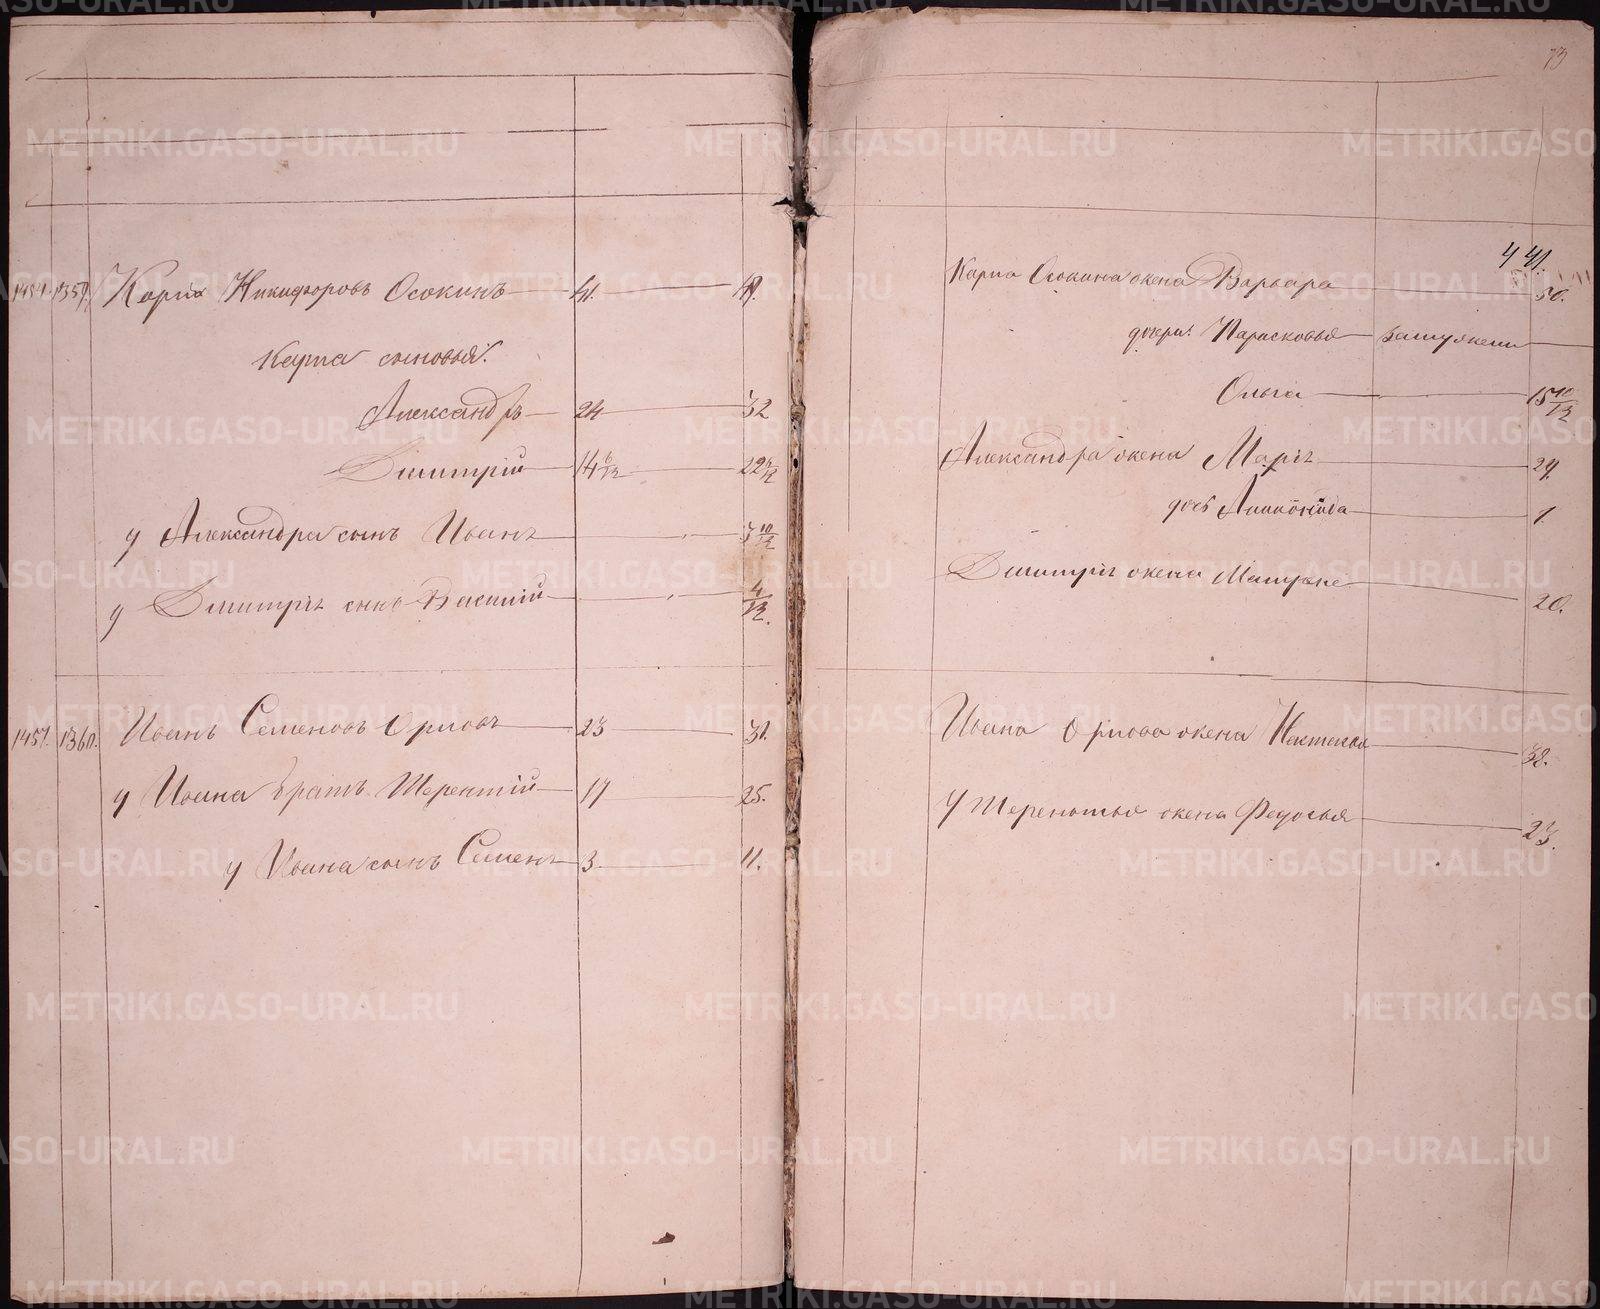 73
441.
1454. 1357. Карпъ Никифоровъ Осокинъ 41. 49.
Карпа сыновья:
Александръ 24 32
Димитрій 14 6/12 22 6/12
у Александра сынъ Иванъ 3 10/12
у Димитрія сынъ Василій 4/12.
1457. 1360. Иванъ Семеновъ Орловъ 23 31.
у Ивана братъ Терентій 17 25.
у Ивана сынъ Семенъ 3. 11.
Карпа Осокина жена Варвара 50.
дочери: Парасковья замужеми
Ольга 15 10/12
Александра жена Марія 24.
дочь 1.
Димитрія жена Матрена 20.
Ивана Орлова жена Настасья 32.
У Терентья жена Федосья 23.